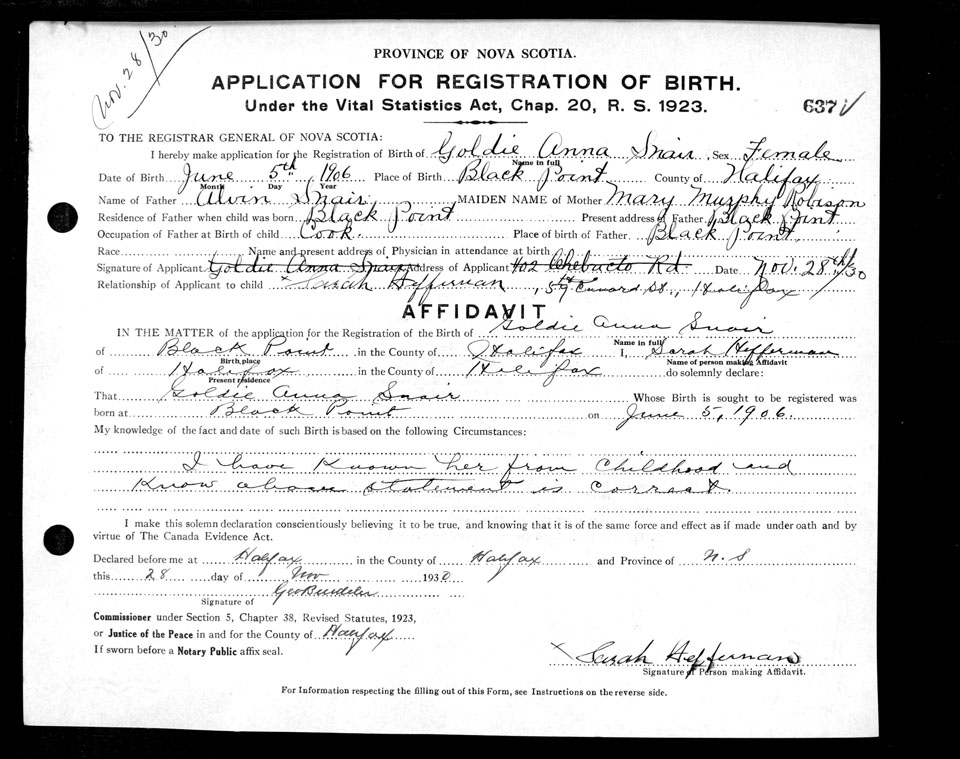 Nov. 28/30
PROVINCE OF NOVA SCOTIA.
APPLICATION FOR REGISTRATION OF BIRTH.
Under the Vital Statistics Act, Chap. 20, R. S. 1923.
637
TO THE REGISTRAR GENERAL OF NOVA SCOTIA:
I hereby make application for the Registration of Birth of Goldie Anna Snair Sex Female
Name in full
Date of Birth June 5th 1906 Place of Birth Black Point County of Halifax
Month Day Year
Name of Father Alvin Snair MAIDEN NAME of Mother Mary Murphy Robison
Residence of Father when child was born Black Point Present address of Father Black Point
Occupation of Father at Birth of child Cook Place of birth of Father Black Point
Race Name and present address of Physician in attendance at birth
Signature of Applicant Goldie Anna Snair Address of Applicant 402 Chebucto Rd. Date Nov. 28th/30
Relationship of Applicant to child x Sarah Hefferman, 59 St., Halifax
AFFIDAVIT
IN THE MATTER of the application for the Registration of the Birth of Goldie Anna Snair
Name in full
of Black Point in the County of Halifax I, Sarah Hefferman
Birth place Name of person making Affidavit
of Halifax in the County of Halifax do solemnly declare:
Present residence
That Goldie Anna Snair Whose Birth is sought to be registered was
born at Black Point on June 5, 1906.
My knowledge of the fact and date of such Birth is based on the following Circumstances:
I have Known her from Childhood and
Know above statement is correct
I make this solemn declaration conscientiously believing it to be true, and knowing that it is of the same force and effect as if made under oath and by
virtue of The Canada Evidence Act.
Declared before me at Halifax in the County of Halifax and Province of N. S
this 28 day of Nov 1930
Signature of
Commissioner under Section 5, Chapter 38, Revised Statutes, 1923,
or Justice of the Peace in and for the County of Halifax
If sworn before a Notary Public affix seal.
x Sarah Hefferman
Signature of Person making Affidavit.
For Information respecting the filling out of this Form, see Instructions on the reverse side.